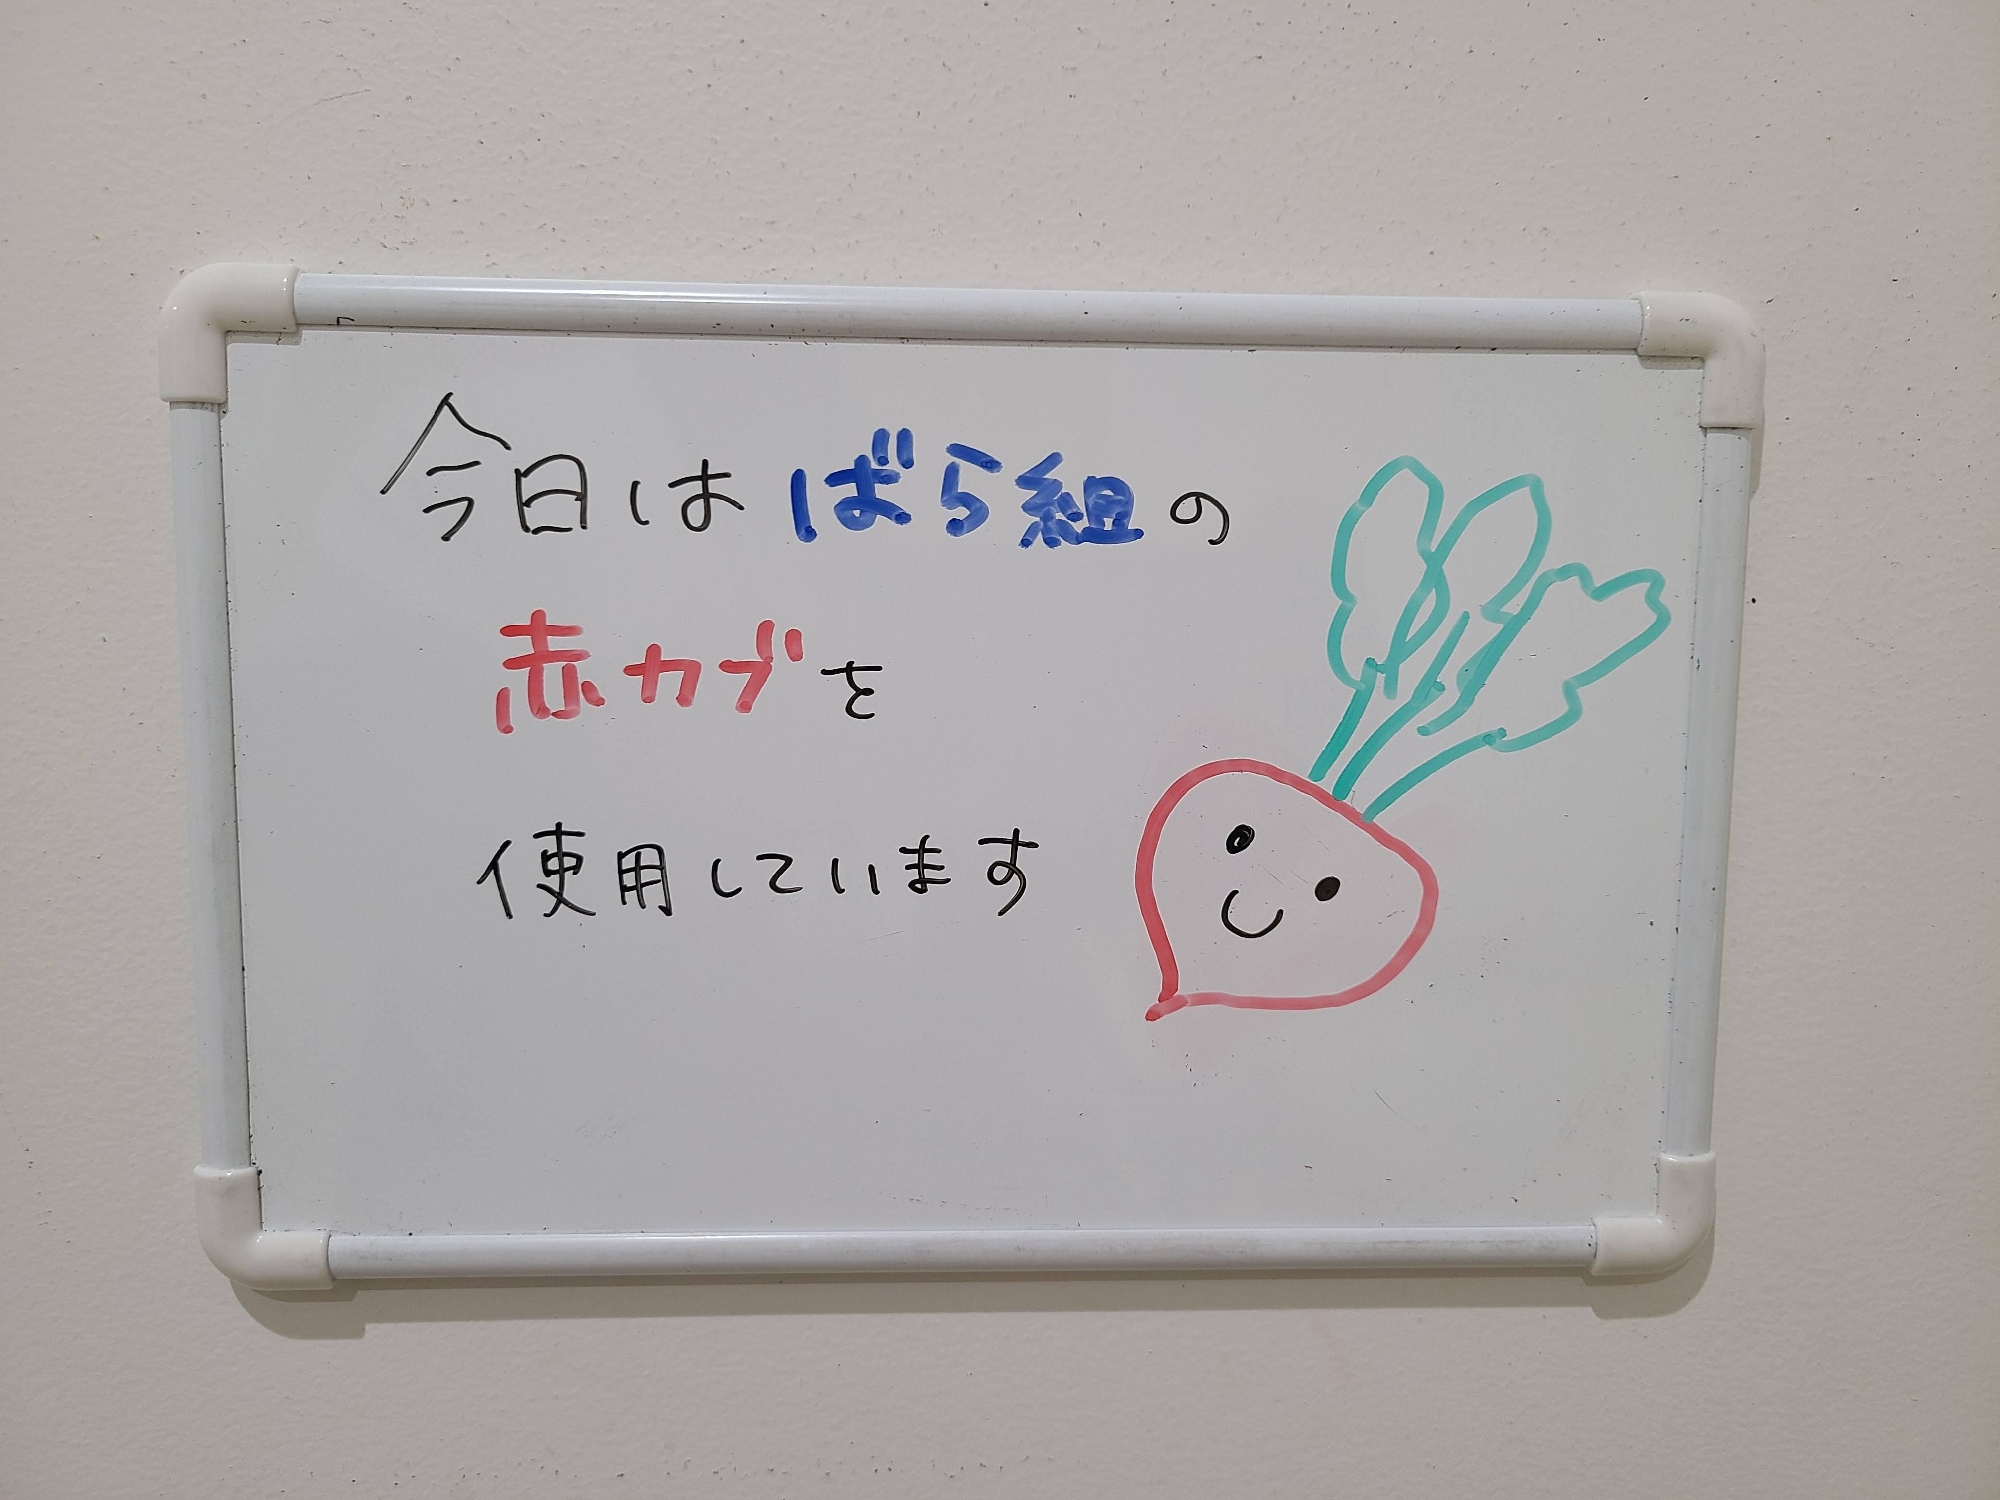 今日はばら組の
赤カブを
使用しています